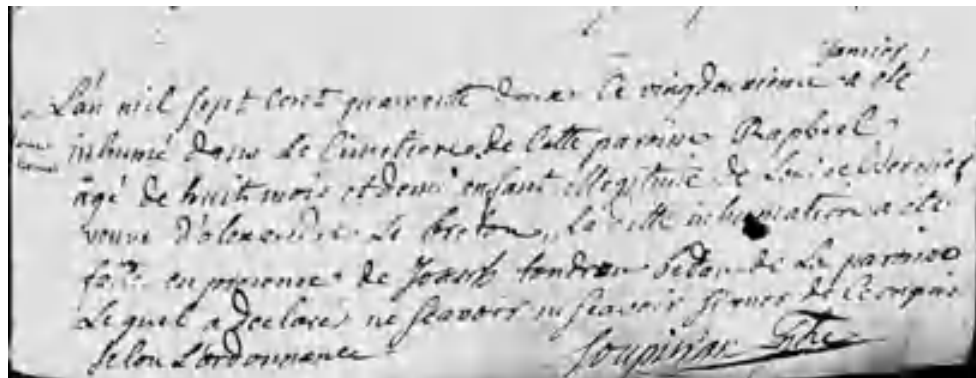 janvier
L'an mil sept cent quarente douze le vingdeuxieme a eté
inhumé dans le cimetiere de cette paroisse Raphael
âgé de huit mois et demi enfant illegitime de Louise
veuve d'alexandre le breton, la ditte inhumation a eté
faite en presence de Joseph bedau de la paroisse
lequel a declaré ne scavoir signer de ce enquis
selon l'ordonnance